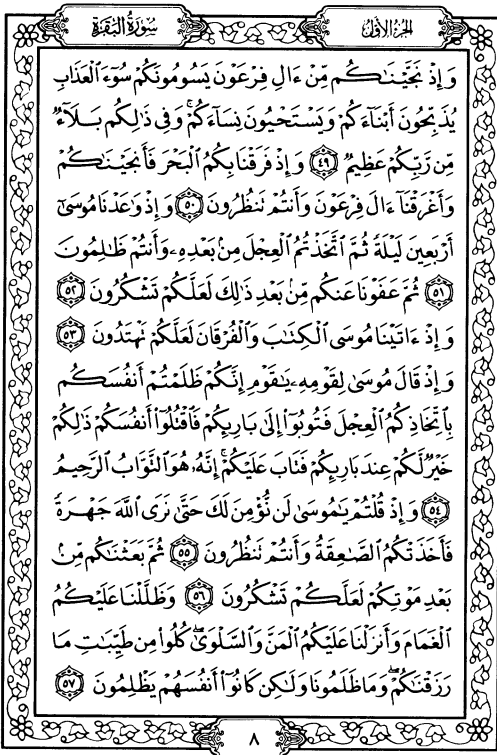 الجزء الأول
سورة البقرة
وَإِذْ نَجَّيْنَٰكُم مِّنْ ءَالِ فِرْعَوْنَ يَسُومُونَكُمْ سُوٓءَ ٱلْعَذَابِ
يُذَبِّحُونَ أَبْنَآءَكُمْ وَيَسْتَحْيُونَ نِسَآءَكُمْ ۚ وَفِى ذَٰلِكُم بَلَآءٌ
مِّن رَّبِّكُمْ عَظِيمٌ ٤٩ وَإِذْ فَرَقْنَا بِكُمُ ٱلْبَحْرَ فَأَنجَيْنَٰكُمْ
وَأَغْرَقْنَآ ءَالَ فِرْعَوْنَ وَأَنتُمْ تَنظُرُونَ ٥٠ وَإِذْ وَٰعَدْنَا مُوسَىٰٓ
أَرْبَعِينَ لَيْلَةً ثُمَّ ٱتَّخَذْتُمُ ٱلْعِجْلَ مِنۢ بَعْدِهِۦ وَأَنتُمْ ظَٰلِمُونَ
٥١ ثُمَّ عَفَوْنَا عَنكُم مِّنۢ بَعْدِ ذَٰلِكَ لَعَلَّكُمْ تَشْكُرُونَ ٥٢
وَإِذْ ءَاتَيْنَا مُوسَى ٱلْكِتَٰبَ وَٱلْفُرْقَانَ لَعَلَّكُمْ تَهْتَدُونَ ٥٣
وَإِذْ قَالَ مُوسَىٰ لِقَوْمِهِۦ يَٰقَوْمِ إِنَّكُمْ ظَلَمْتُمْ أَنفُسَكُم
بِٱتِّخَاذِكُمُ ٱلْعِجْلَ فَتُوبُوٓا۟ إِلَىٰ بَارِئِكُمْ فَٱقْتُلُوٓا۟ أَنفُسَكُمْ ذَٰلِكُمْ
خَيْرٌ لَّكُمْ عِندَ بَارِئِكُمْ فَتَابَ عَلَيْكُمْ ۚ إِنَّهُۥ هُوَ ٱلتَّوَّابُ ٱلرَّحِيمُ
٥٤ وَإِذْ قُلْتُمْ يَٰمُوسَىٰ لَن نُّؤْمِنَ لَكَ حَتَّىٰ نَرَى ٱللَّهَ جَهْرَةً
فَأَخَذَتْكُمُ ٱلصَّٰعِقَةُ وَأَنتُمْ تَنظُرُونَ ٥٥ ثُمَّ بَعَثْنَٰكُم مِّنۢ
بَعْدِ مَوْتِكُمْ لَعَلَّكُمْ تَشْكُرُونَ ٥٦ وَظَلَّلْنَا عَلَيْكُمُ
ٱلْغَمَامَ وَأَنزَلْنَا عَلَيْكُمُ ٱلْمَنَّ وَٱلسَّلْوَىٰ ۖ كُلُوا۟ مِن طَيِّبَٰتِ مَا
رَزَقْنَٰكُمْ ۖ وَمَا ظَلَمُونَا وَلَٰكِن كَانُوٓا۟ أَنفُسَهُمْ يَظْلِمُونَ ٥٧
٨